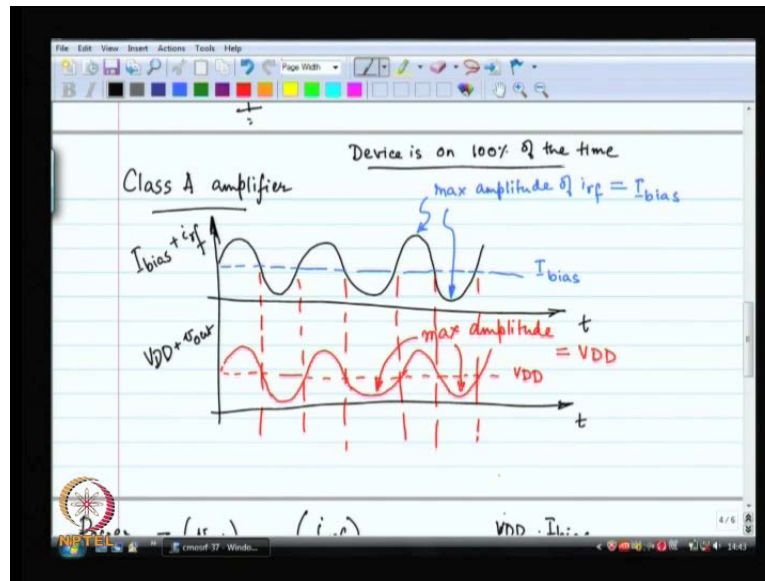 File Edit View Insert Actions Tools Help
Page Width
Device is on 100% of the time
Class A amplifier
max amplitude of irf = Ibias
Ibias + irf
Ibias
t
VDD + vout
max amplitude = VDD
VDD
t
VDD . Ibias
4/6
NPTEL
cmosrf-37 - Windo...
14:43